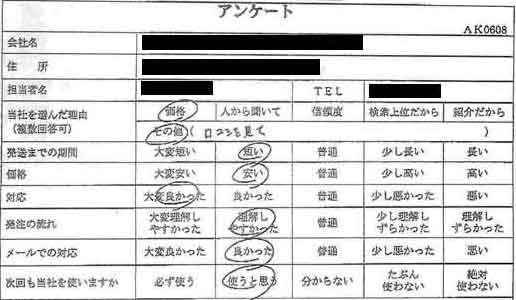 アンケート
AK0608
会社名
住 所
担当者名 TEL
当社を選んだ理由 (複数回答可) 価格 人から聞いて 信頼度 検索上位だから 紹介だから
その他 ( 口コミを見て )
発送までの期間 大変短い 短い 普通 少し長い 長い
価格 大変安い 安い 普通 少し高い 高い
対応 大変良かった 良かった 普通 少し悪かった 悪い
発注の流れ 大変理解しやすかった 理解しやすかった 普通 少し理解しずらかった 理解しずらかった
メールでの対応 大変良かった 良かった 普通 少し悪かった 悪い
次回も当社を使いますか 必ず使う 使うと思う 分からない たぶん使わない 絶対使わない